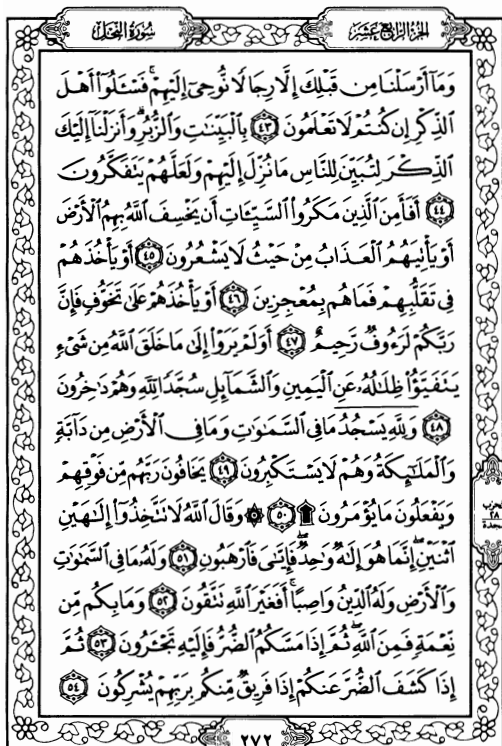 الجزء الرابع عشر
سورة النحل
وَمَآ أَرْسَلْنَا مِن قَبْلِكَ إِلَّا رِجَالًا نُّوحِىٓ إِلَيْهِمْ ۚ فَسْـَٔلُوٓا۟ أَهْلَ
ٱلذِّكْرِ إِن كُنتُمْ لَا تَعْلَمُونَ ٤٣ بِٱلْبَيِّنَٰتِ وَٱلزُّبُرِ ۗ وَأَنزَلْنَآ إِلَيْكَ
ٱلذِّكْرَ لِتُبَيِّنَ لِلنَّاسِ مَا نُزِّلَ إِلَيْهِمْ وَلَعَلَّهُمْ يَتَفَكَّرُونَ
٤٤ أَفَأَمِنَ ٱلَّذِينَ مَكَرُوا۟ ٱلسَّيِّـَٔاتِ أَن يَخْسِفَ ٱللَّهُ بِهِمُ ٱلْأَرْضَ
أَوْ يَأْتِيَهُمُ ٱلْعَذَابُ مِنْ حَيْثُ لَا يَشْعُرُونَ ٤٥ أَوْ يَأْخُذَهُمْ
فِى تَقَلُّبِهِمْ فَمَا هُم بِمُعْجِزِينَ ٤٦ أَوْ يَأْخُذَهُمْ عَلَىٰ تَخَوُّفٍ فَإِنَّ
رَبَّكُمْ لَرَءُوفٌ رَّحِيمٌ ٤٧ أَوَلَمْ يَرَوْا۟ إِلَىٰ مَا خَلَقَ ٱللَّهُ مِن شَىْءٍ
يَتَفَيَّؤُا۟ ظِلَٰلُهُۥ عَنِ ٱلْيَمِينِ وَٱلشَّمَآئِلِ سُجَّدًا لِّلَّهِ وَهُمْ دَٰخِرُونَ
٤٨ وَلِلَّهِ يَسْجُدُ مَا فِى ٱلسَّمَٰوَٰتِ وَمَا فِى ٱلْأَرْضِ مِن دَآبَّةٍ
وَٱلْمَلَٰٓئِكَةُ وَهُمْ لَا يَسْتَكْبِرُونَ ٤٩ يَخَافُونَ رَبَّهُم مِّن فَوْقِهِمْ
وَيَفْعَلُونَ مَا يُؤْمَرُونَ ۩ ٥٠ ۞ وَقَالَ ٱللَّهُ لَا تَتَّخِذُوٓا۟ إِلَٰهَيْنِ
ٱثْنَيْنِ ۖ إِنَّمَا هُوَ إِلَٰهٌ وَٰحِدٌ ۖ فَإِيَّٰىَ فَٱرْهَبُونِ ٥١ وَلَهُۥ مَا فِى ٱلسَّمَٰوَٰتِ
وَٱلْأَرْضِ وَلَهُ ٱلدِّينُ وَاصِبًا ۚ أَفَغَيْرَ ٱللَّهِ تَتَّقُونَ ٥٢ وَمَا بِكُم مِّن
نِّعْمَةٍ فَمِنَ ٱللَّهِ ۖ ثُمَّ إِذَا مَسَّكُمُ ٱلضُّرُّ فَإِلَيْهِ تَجْـَٔرُونَ ٥٣ ثُمَّ
إِذَا كَشَفَ ٱلضُّرَّ عَنكُمْ إِذَا فَرِيقٌ مِّنكُم بِرَبِّهِمْ يُشْرِكُونَ ٥٤
الحزب
٢٨
سجدة
٢٧٢